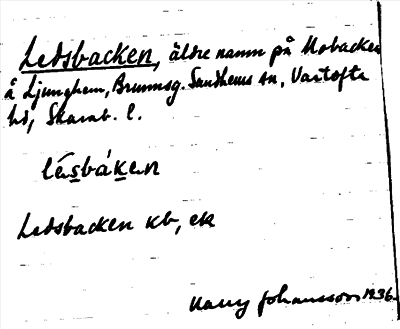 Ledsbacken, äldre namn på Mobacken
å Ljunghem, Brunnsg. Sandhems sn, Vartofta
hd, Skarab. l.
lésbáken
Ledsbacken kb, ek
Harry Johansson 1936.